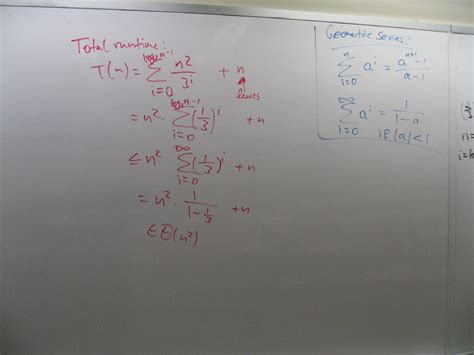 Total runtime:
T(n) = ∑ i=0 n²/3ⁱ + n
leaves
= n² · ∑ i=0 (1/3)ⁱ + n
≤ n² ∑ i=0 ∞ (1/3)ⁱ + n
= n² · 1/(1 - 1/3) + n
∈ Θ(n²)
Geometric series:
∑ i=0 n aⁱ = (aⁿ⁺¹ - 1)/(a - 1)
∑ i=0 ∞ aⁱ = 1/(1 - a)
if |a| < 1
n=